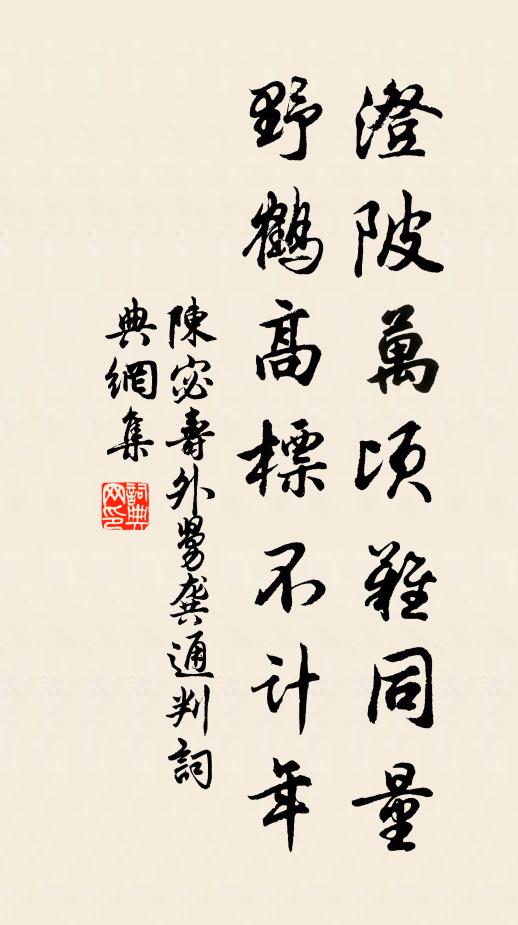 澄陂萬頃難同量
野鶴高標不計年
陳宓壽外舅龔通判詞
典網集
詞典網印